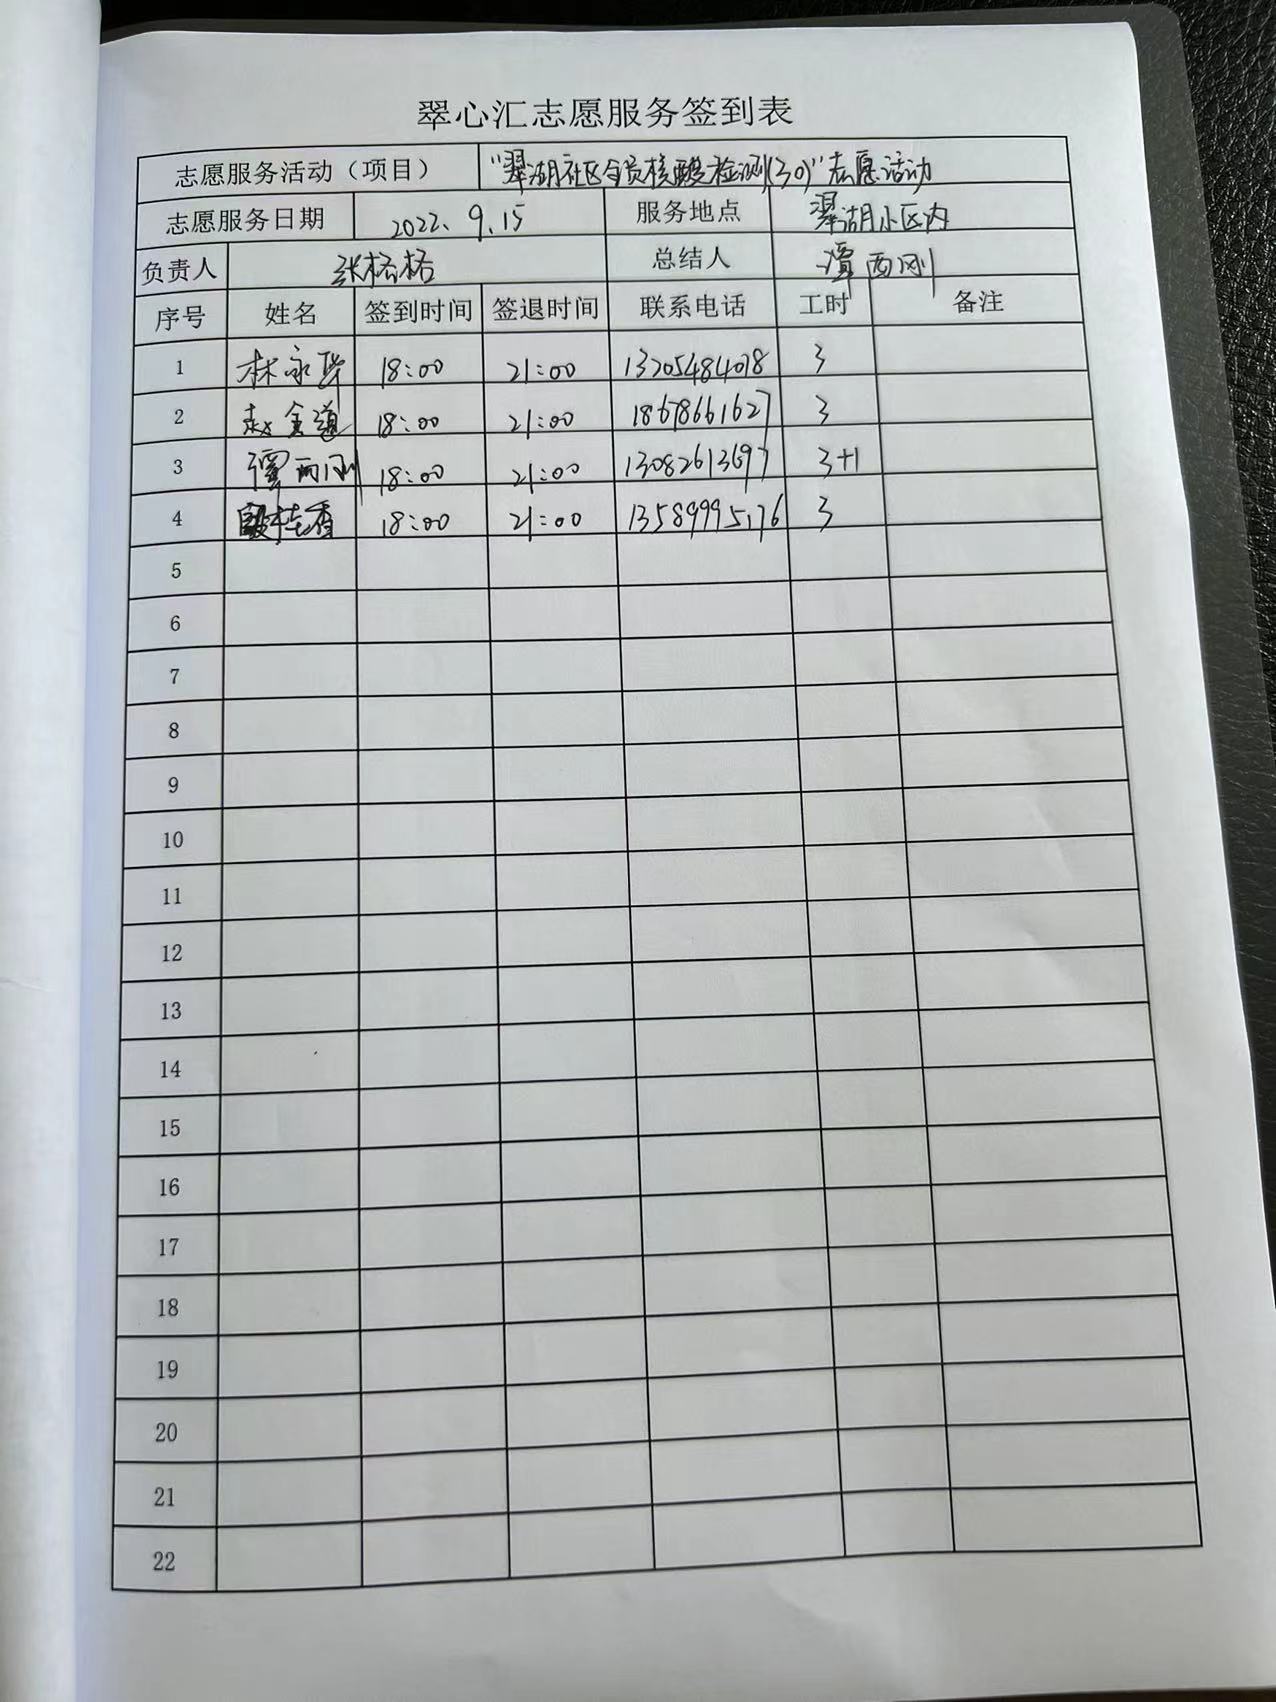 翠心汇志愿服务签到表
志愿服务活动（项目） "翠湖社区全员核酸检测(30)"志愿活动
志愿服务日期 2022.9.15 服务地点 翠湖小区内
负责人 张格格 总结人 谭西刚
序号 姓名 签到时间 签退时间 联系电话 工时 备注
1 林永华 18:00 21:00 13205484078 3
2 赵金道 18:00 21:00 18678661627 3
3 谭西刚 18:00 21:00 13082613697 3+1
4 殷桂香 18:00 21:00 13589995176 3
5
6
7
8
9
10
11
12
13
14
15
16
17
18
19
20
21
22